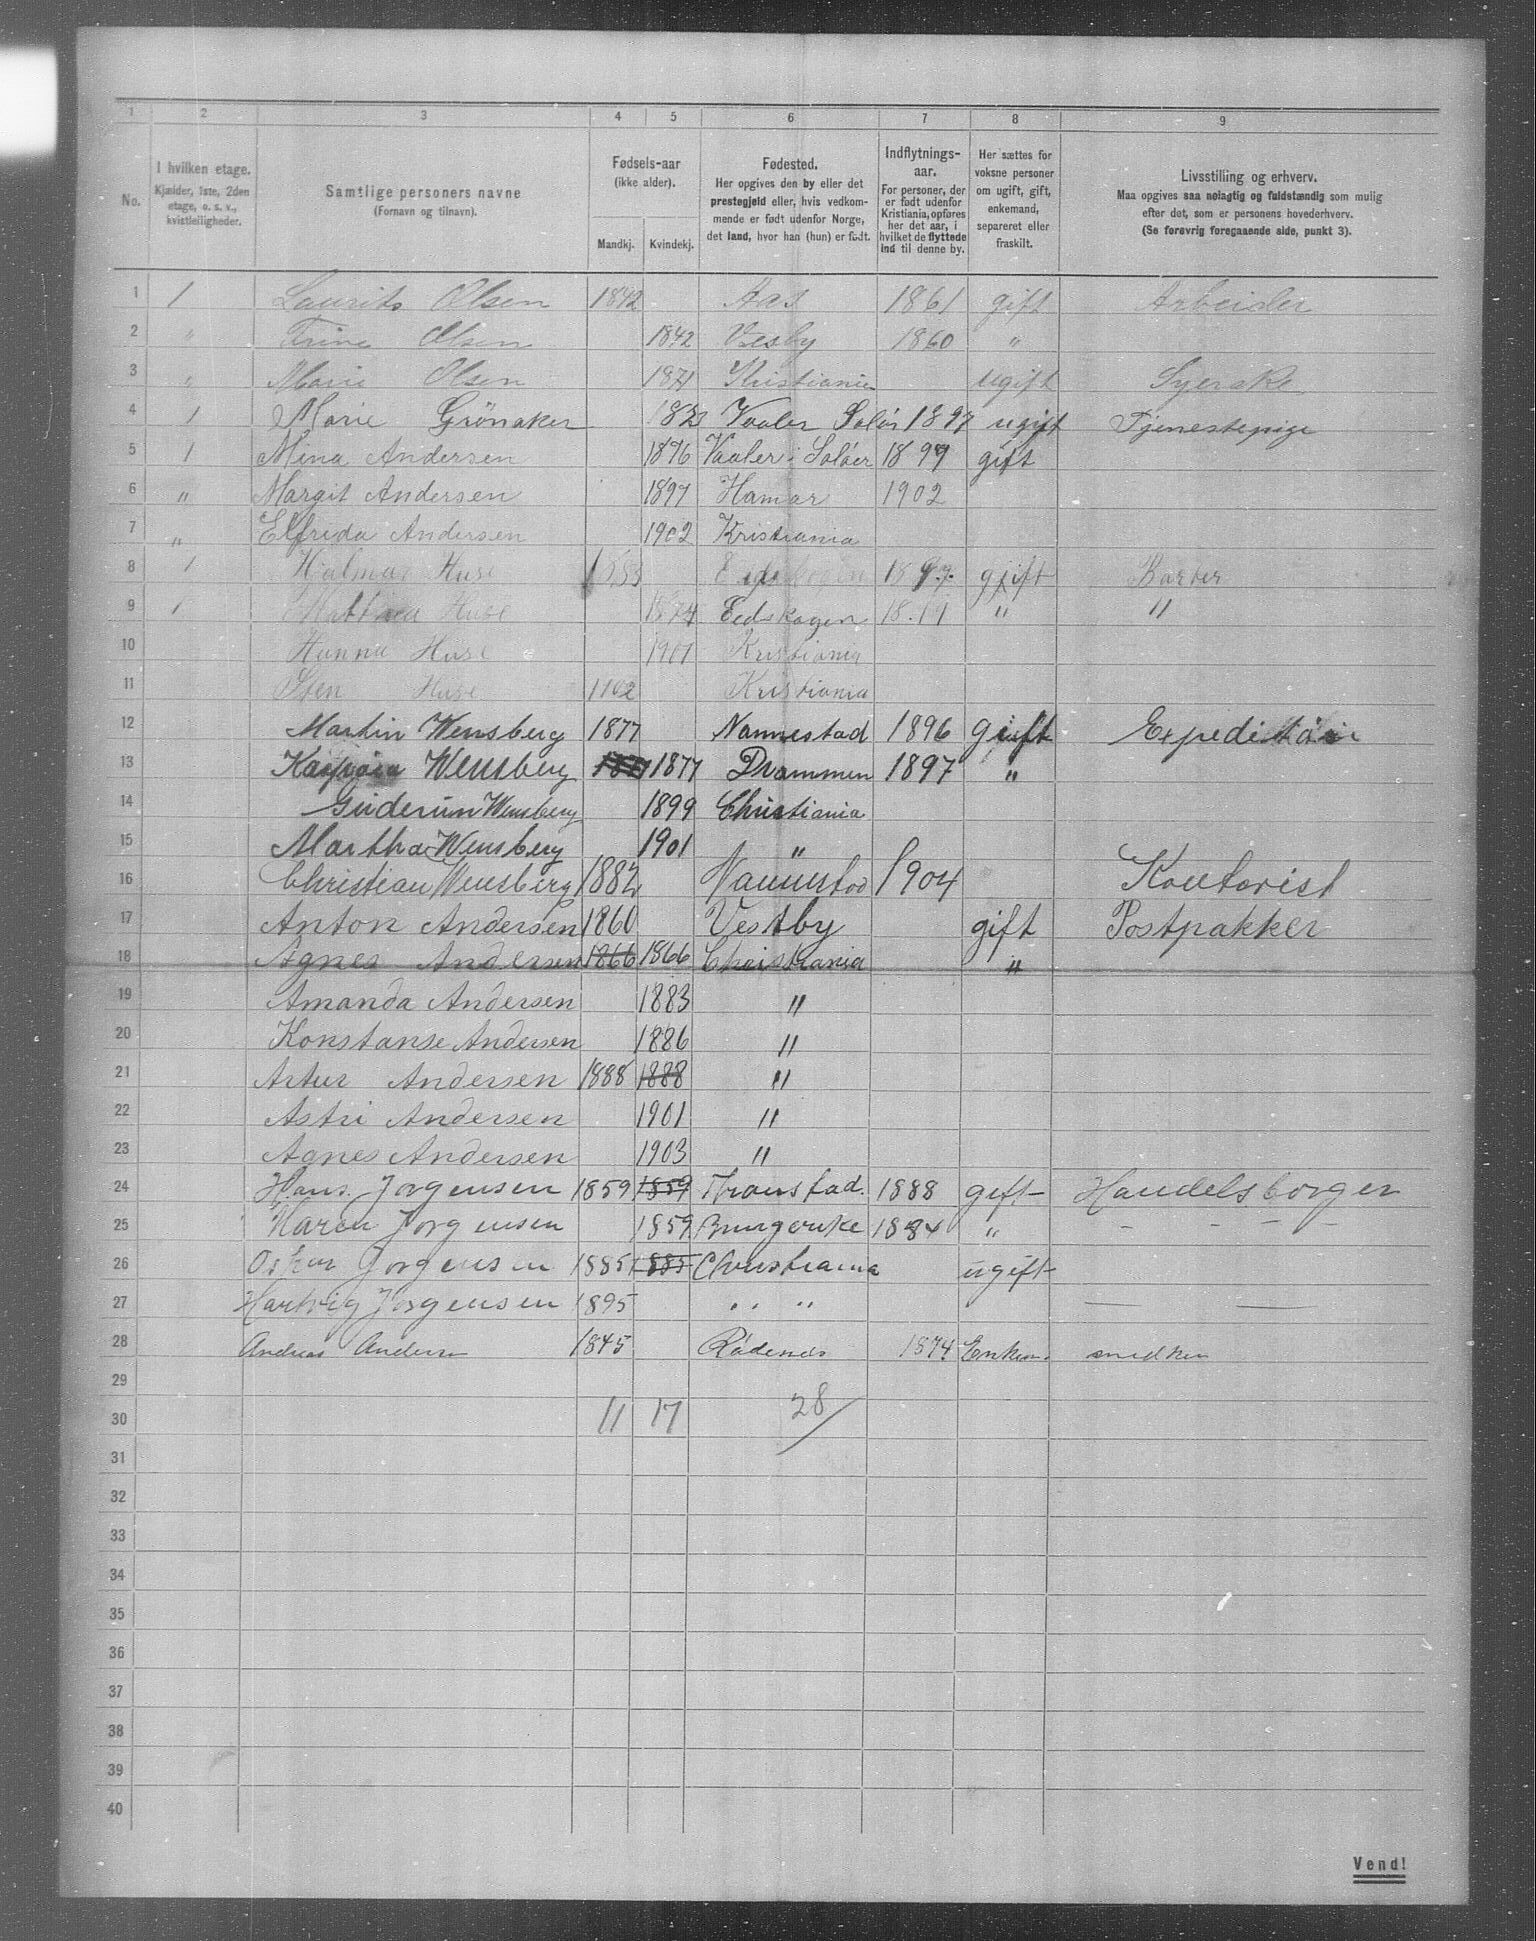 1 2 3 4 5 6 7 8 9
No.
I hvilken etage.
Kjælder, 1ste, 2den
etage, o. s. v.,
kvistleiligheder.
Samtlige personers navne
(Fornavn og tilnavn).
Fødsels-aar
(ikke alder).
Mandkj. Kvindekj.
Fødested.
Her opgives den by eller det
prestegjeld eller, hvis vedkom-
mende er født udenfor Norge,
det land, hvor han (hun) er født.
Indflytnings-
aar.
For personer, der
er født udenfor
Kristiania, opføres
her det aar, i
hvilket de flyttede
ind til denne by.
Her sættes for
voksne personer
om ugift, gift,
enkemand,
separeret eller
fraskilt.
Livsstilling og erhverv.
Maa opgives saa nøiagtig og fuldstændig som mulig
efter det, som er personens hovederhverv.
(Se forøvrig foregaaende side, punkt 3).
1 1 Laurits Olsen 1842 Aas 1861 gift Arbeider
2 " Trine Olsen 1842 Vesby 1860 "
3 " Marie Olsen 1871 Kristiania ugift Syerske
4 1 Marie Grönaker Vaaler Solör 1897 ugift Tjenestepige
5 1 Mina Andersen 1876 Vaaler i Soløer 1899 gift
6 " Margit Andersen 1897 Hamar 1902
7 " Elfrida Andersen 1902 Kristiania
8 1 Hjalmar Huse gift Barber
9 1 Huse 1874 Eedskogen " "
10 Hanna Huse 1901 Kristiania
11 Sten Huse 1902 Kristiania
12 Martin Wensberg 1877 Nannestad 1896 gift Expeditör
13 Wensberg 1877 Drammen 1897 "
14 Guderun Wensberg 1899 Christiania
15 Martha Wensberg 1901 "
16 Christian Wensberg 1882 Nannestad 1904 Kontorist
17 Anton Andersen 1860 Vestby gift Postpakker
18 Agnes Andersen 1866 1866 Christiania "
19 Amanda Andersen 1883 "
20 Konstanse Andersen 1886 "
21 Artur Andersen 1888 1888 "
22 Astri Andersen 1901 "
23 Agnes Andersen 1903 "
24 Hans Jorgensen 1859 1859 1888 gift Handelsborger
25 Karen Jorgensen 1859 1884 " - - - -
26 Oskar Jorgensen 1885 1885 Christiania ugift
27 Hartvig Jorgensen 1895 " " — —
28 Andreas Andersen 1845 Rödenes 1874 Enkem. snedker
29
30 11 17 28
31
32
33
34
35
36
37
38
39
40
Vend!